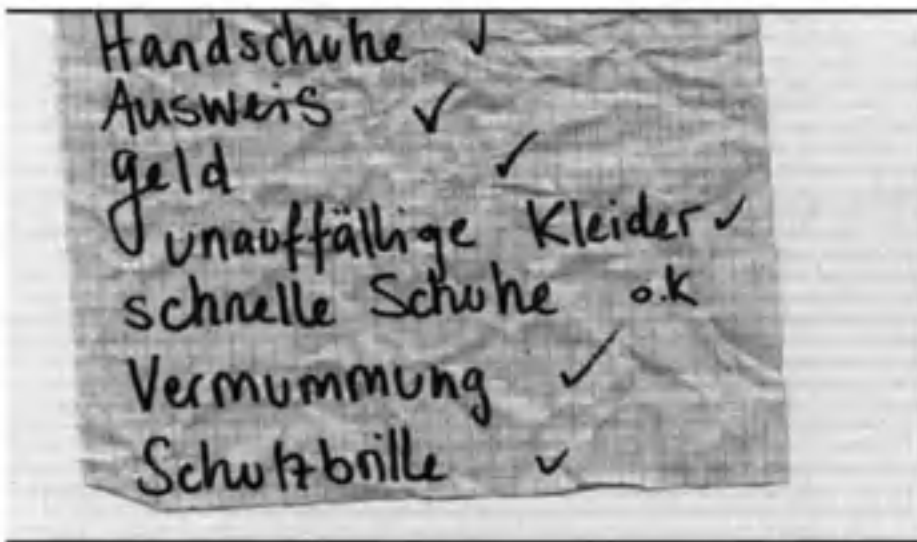 Handschuhe ✓
Ausweis ✓
Geld ✓
unauffällige Kleider ✓
schnelle Schuhe o.K
Vermummung ✓
Schutzbrille ✓